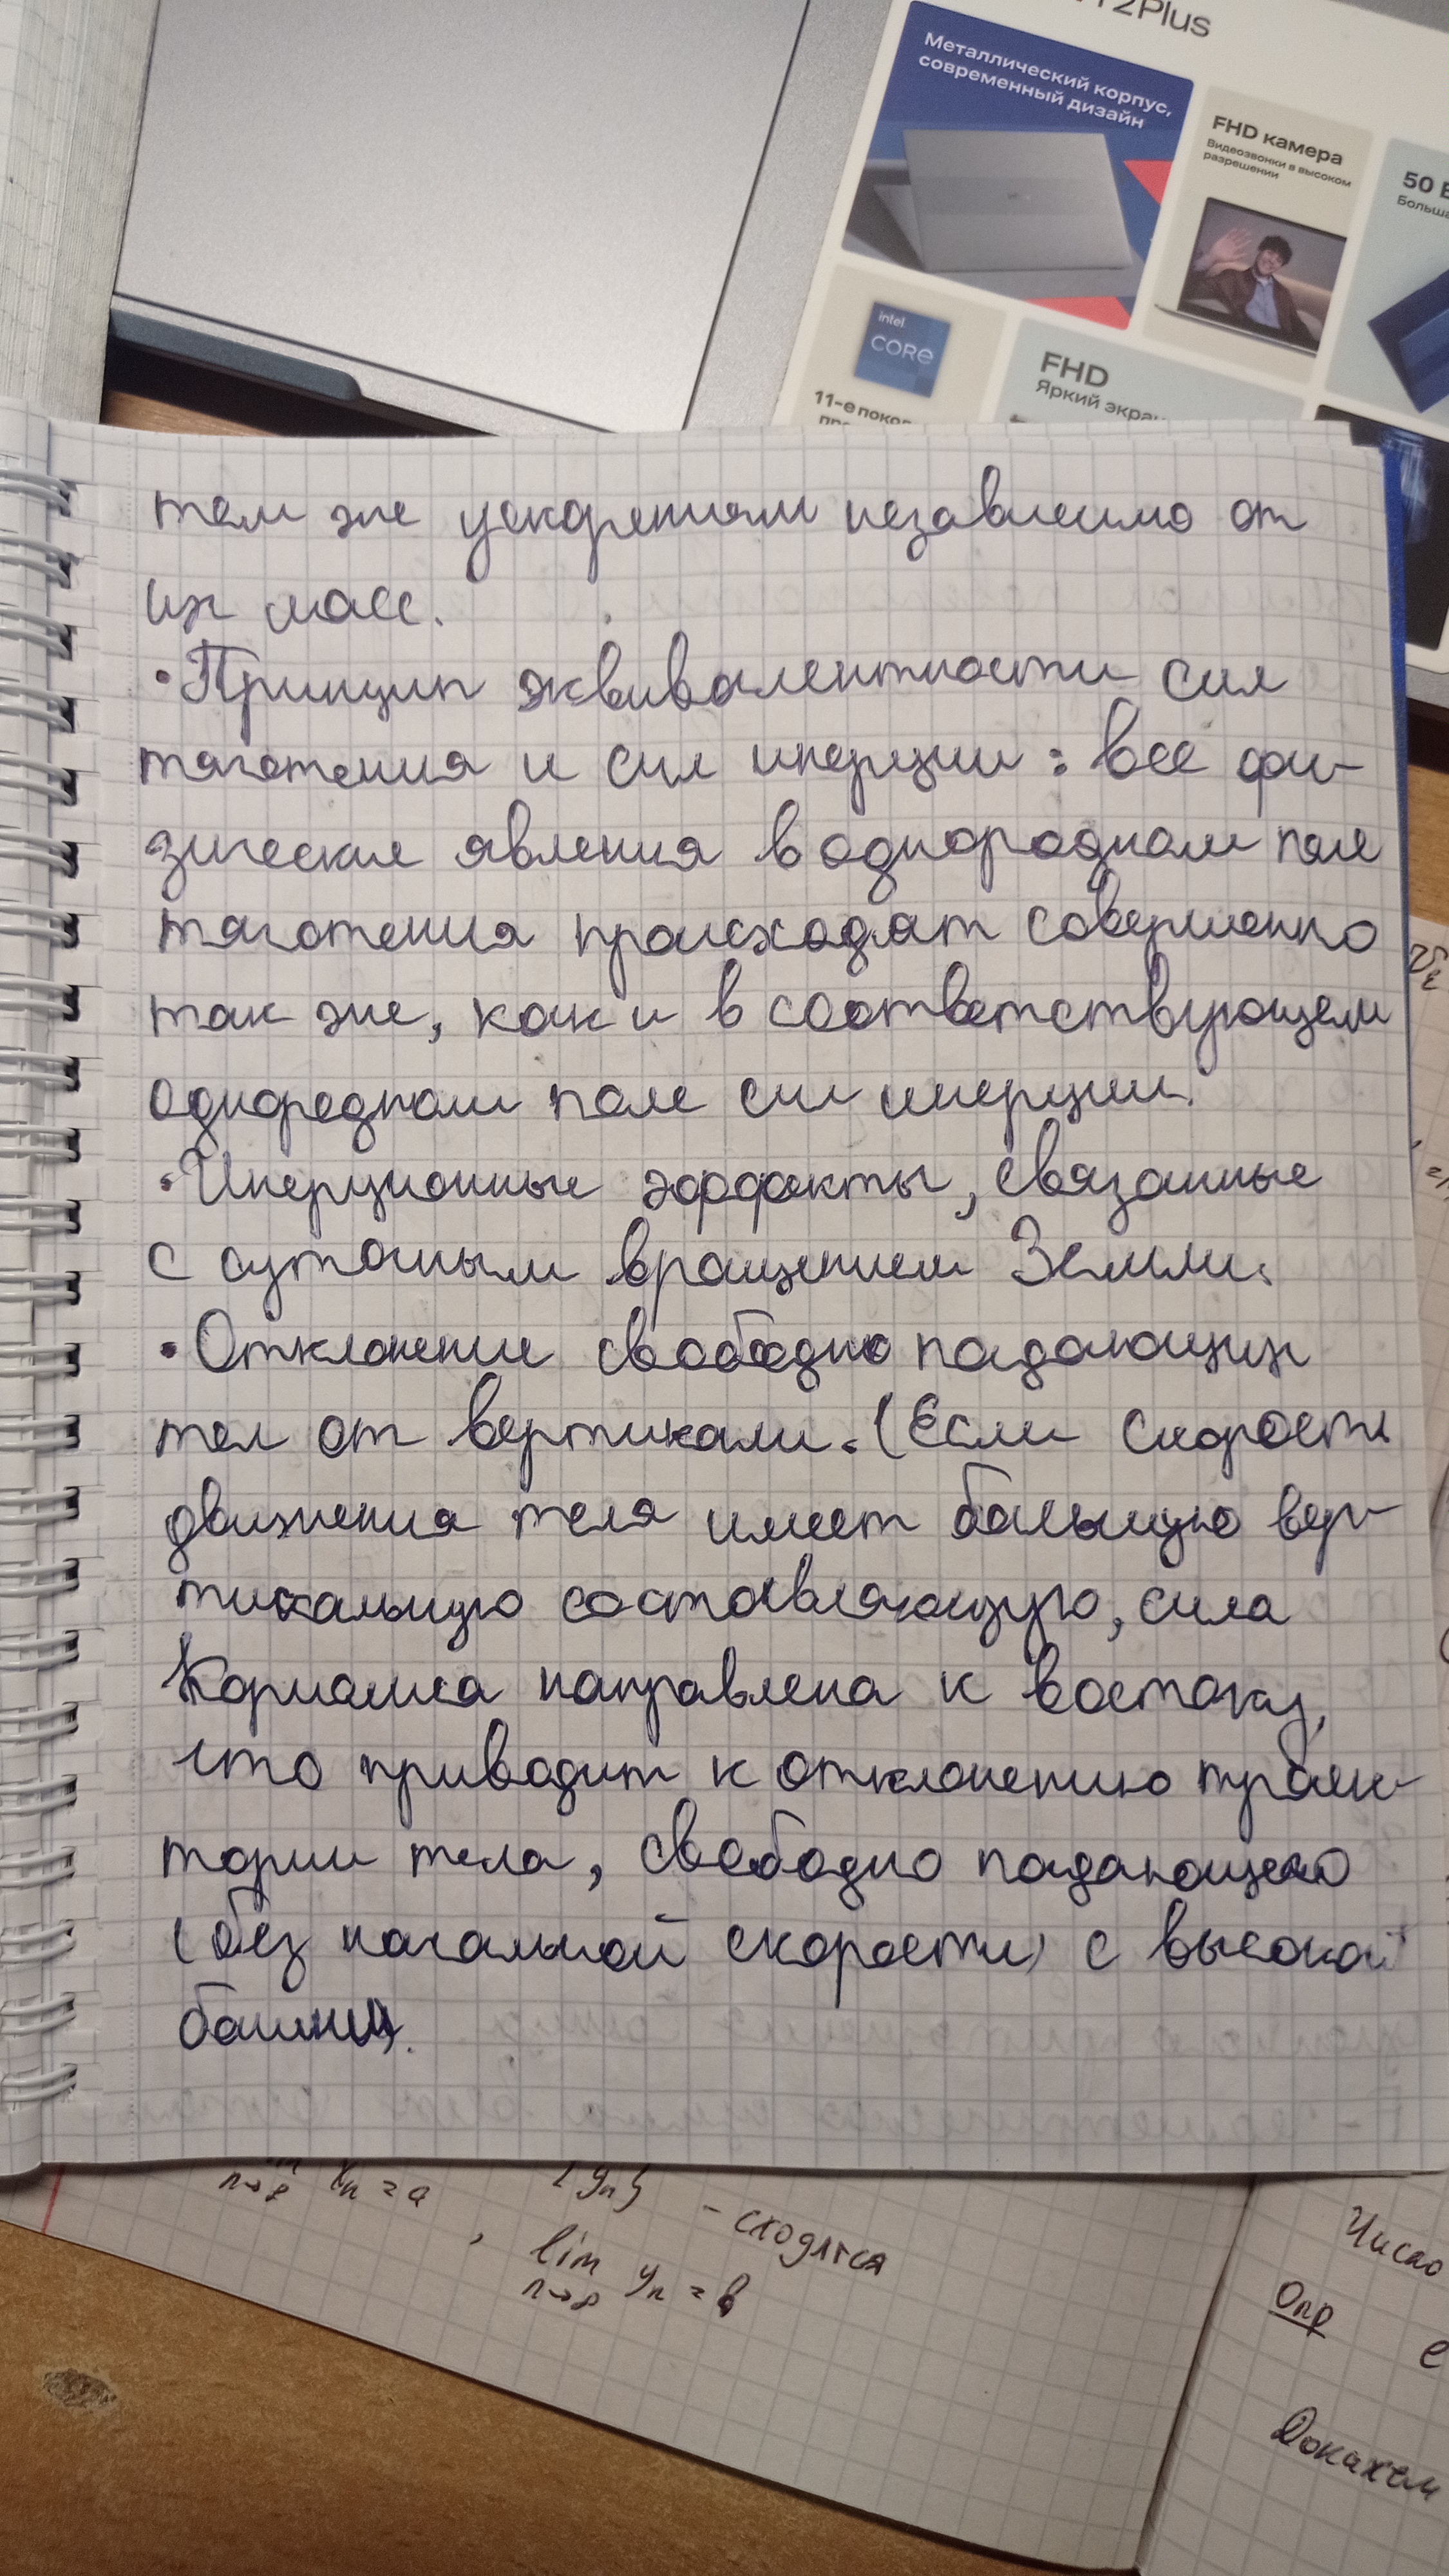 T2Plus
Металлический корпус,
современный дизайн
FHD камера
Видеозвонки в высоком
разрешении
50 В
Больша
intel
CORE
FHD
Яркий экран
11-е покол
тем же ускорениям независимо от
их масс.
• Принцип эквивалентности сил
тяготения и сил инерции: все фи-
зические явления в однородном поле
тяготения происходят совершенно
так же, как и в соответствующем
однородном поле сил инерции.
• Инерционные эффекты, связанные
с суточным вращением Земли.
• Отклонение свободно падающих
тел от вертикали. (Если скорость
движения тела имеет большую вер-
тикальную составляющую, сила
Кориолиса направлена к востоку,
что приводит к отклонению траек-
тории тела, свободно падающего
(без начальной скорости) с высокой
башни).
n→∞ xn = a , {yn} - сходятся
lim yn = b
n→∞
Число
Опр
Докажем